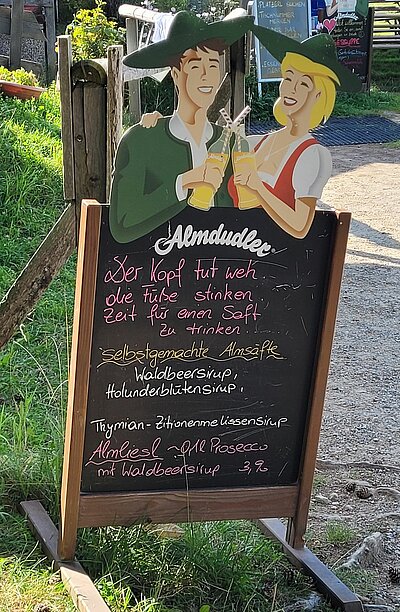 Almdudler
Der Kopf tut weh
die Füße stinken
Zeit für einen Saft
zu trinken.
selbstgemachte Almsäfte
Waldbeersirup,
Holunderblütensirup,
Thymian-Zitronenmelissensirup
Almliesl ~0,1l Prosecco
mit Waldbeersirup 3,90